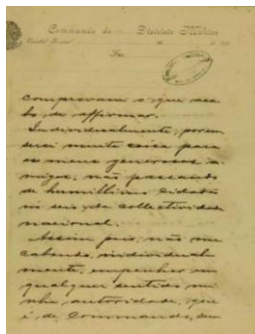 Commando do Districto Militar
comprovam o que aca-
bo de affirmar.
Individualmente, porem
serei muita coisa para
os meus generosos a-
migos, não passando
de humillimo cidadão
no seio da collectividade
nacional.
Assim pois, não me
cabendo, individual-
mente, empenhar em
qualquer sentido mi-
nha autoridade, que
é de Commando, sem